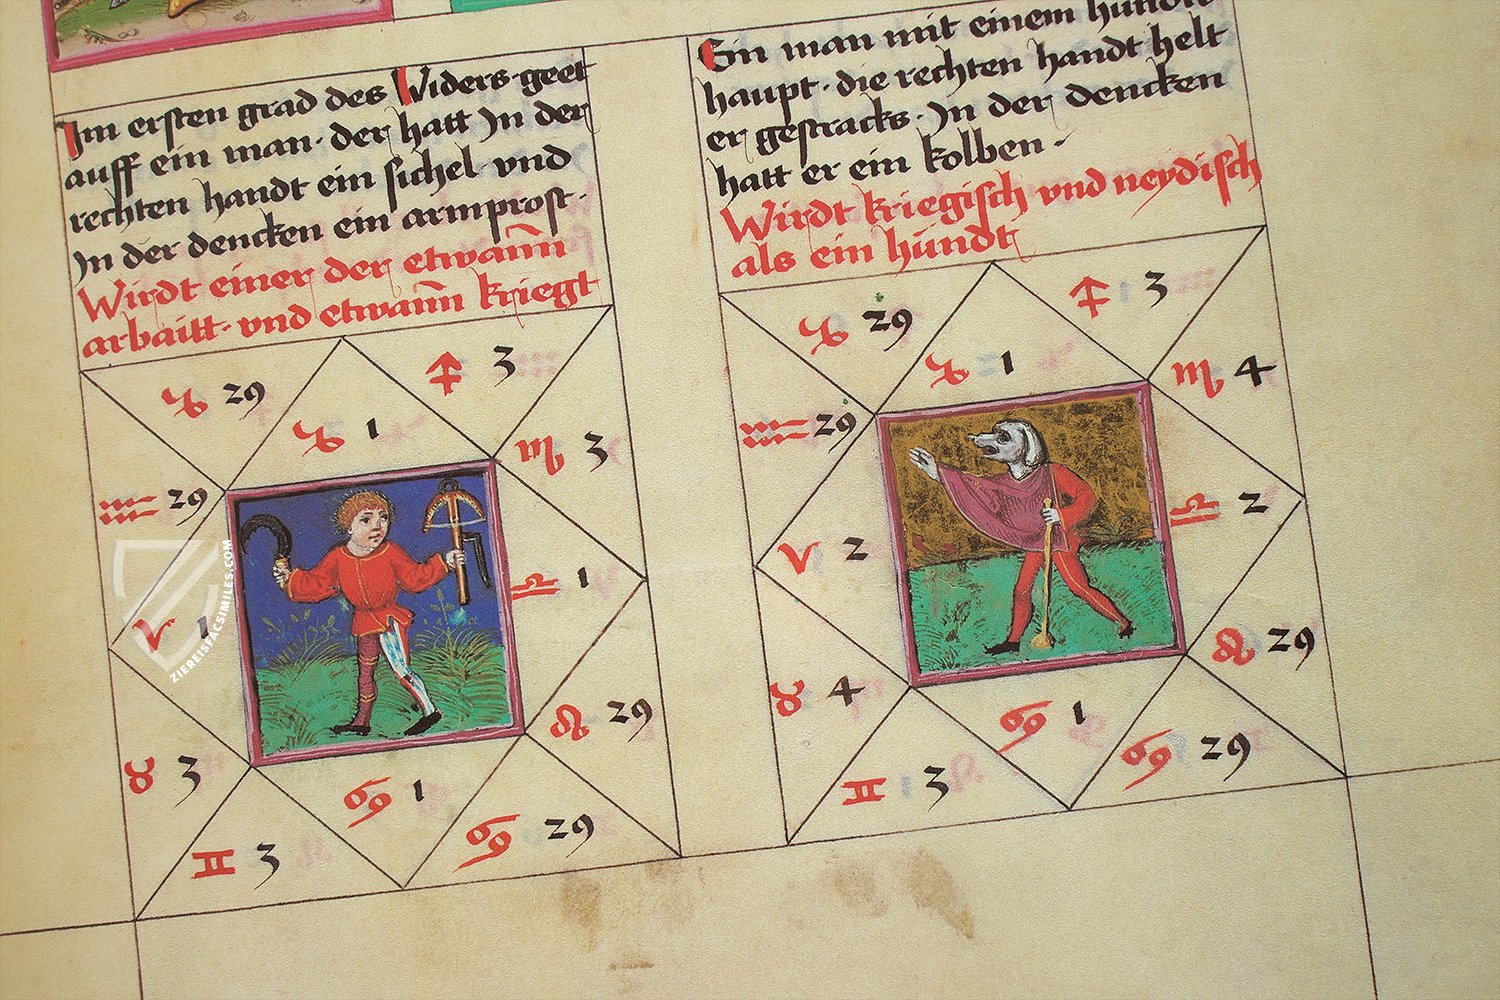 Im ersten grad des Widers geet
auff ein man · der hatt In der
rechten handt ein sichel · vnd
In der dencken ein armprost ·
Wirdt einer der etwañ
arbaitt · vnd etwañ kriegt
♑ 29
♐ 3
♑ 1
♏ 3
♒ 29
♎ 1
♈ 1
♌ 29
♉ 3
♋ 1
♋ 29
♊ 3
Ein man mit einem
haupt · die rechten handt helt
er gestracks · In der dencken
hatt er ein kolben ·
Wirdt kriegisch vnd neydisch
als ein hündt
♑ 29
♐ 3
♑ 1
♏ 4
♒ 29
♎ 2
♈ 2
♌ 29
♉ 4
♋ 1
♋ 29
♊ 3
ZIEREISFACSIMILES.COM